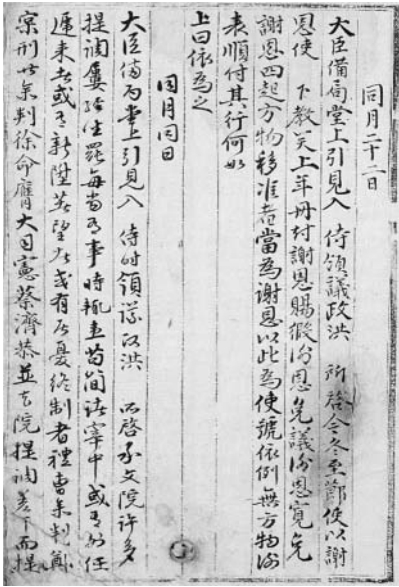 同月二十二日
大臣備局堂上引見入 侍領議政洪 所啓今冬至節使以謝
恩使 下教矣上年冊封謝恩賜緞謝恩免議謝恩寬免
謝恩四起方物移准者當為謝恩以此為使號依例無方物謝
表順付其行何如
上曰依為之
同月同日
大臣備局堂上引見入 侍時領議政洪 所啓承文院許多
提調屢經生罷每當有事時輒患苟簡諸宰中或有外任
遞來者或有新陞者望者或有居憂終制者禮曹參判鄭
刑曹參判徐命膺大司憲蔡濟恭並本院提調差下而提